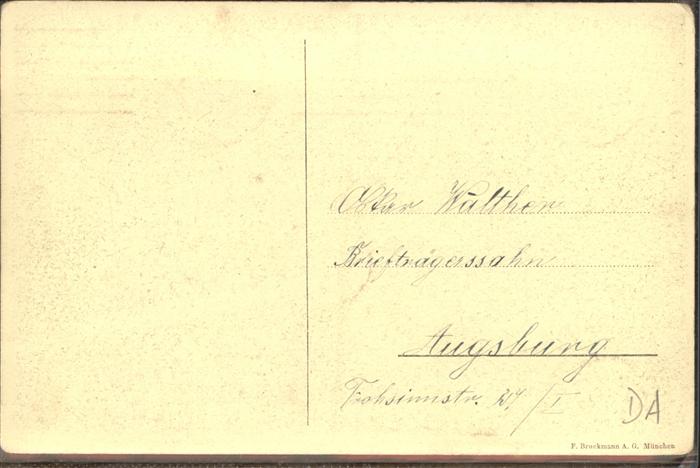 Oskar Walther
Briefträgerssohn
Augsburg
Frohsinnstr. /I
DA
F. Bruckmann A. G. München